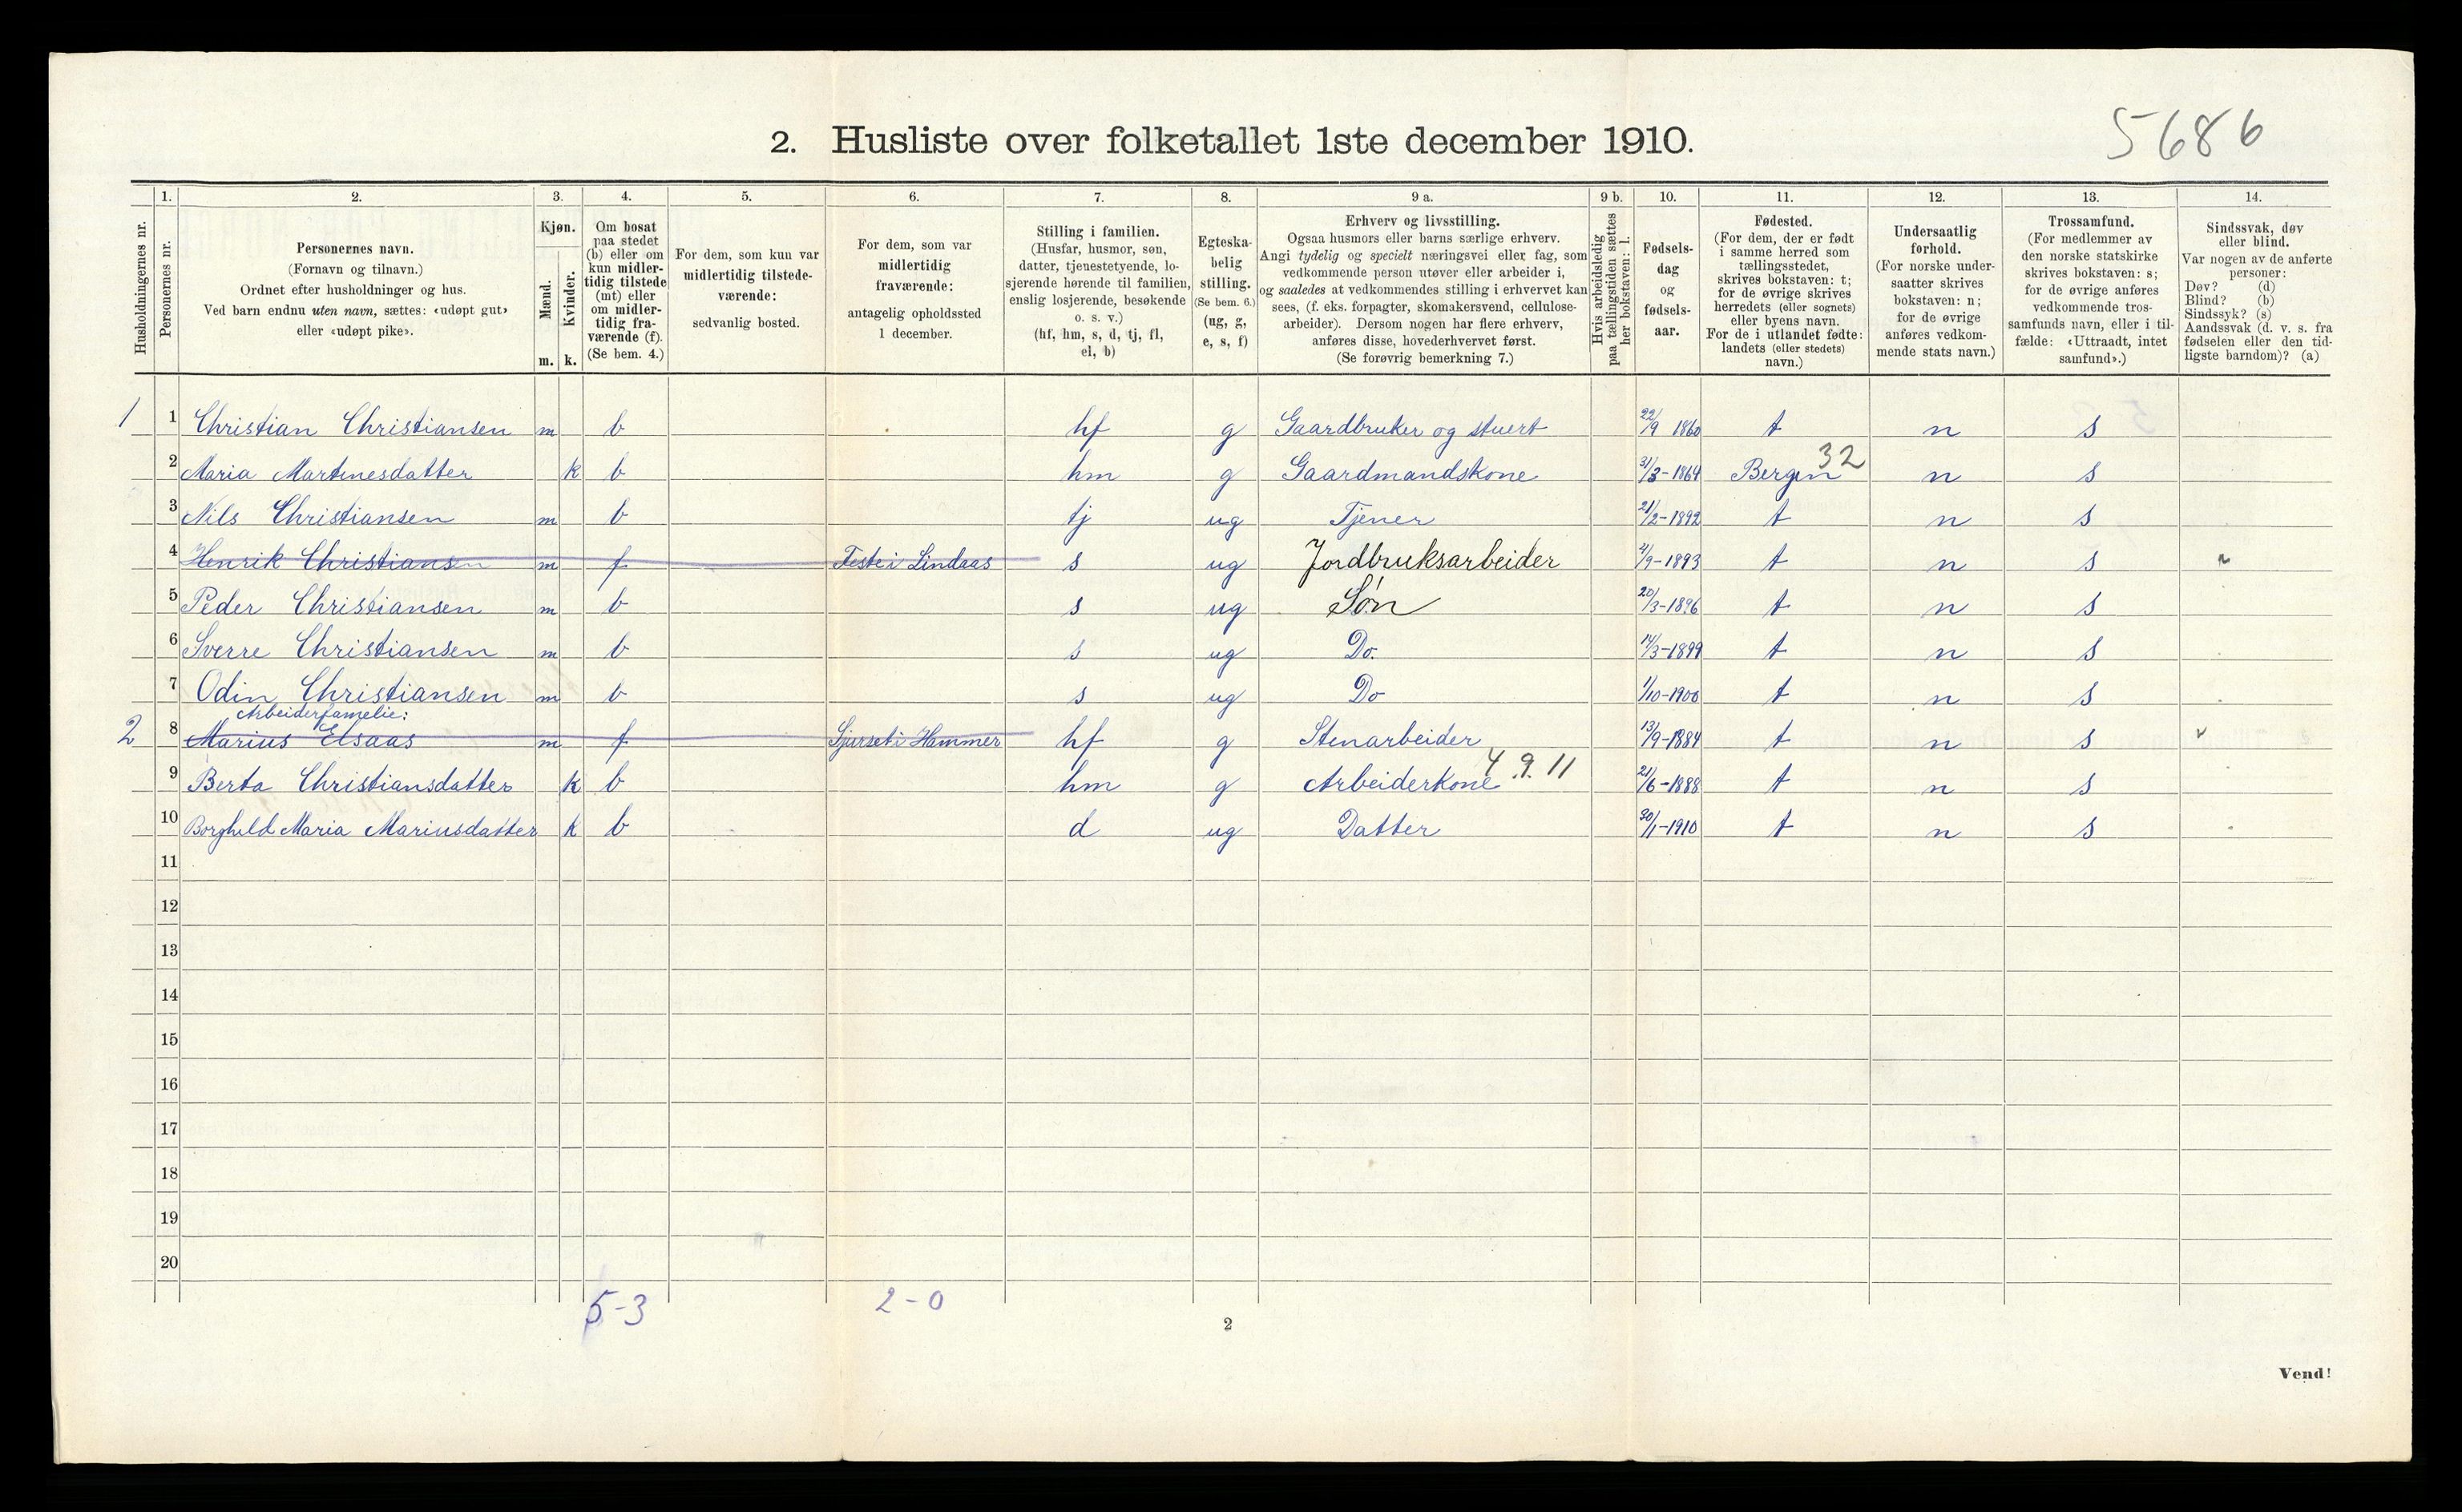 5686
2. Husliste over folketallet 1ste december 1910.
Husholdningernes nr.
1. Personernes nr.
2. Personernes navn. (Fornavn og tilnavn.) Ordnet efter husholdninger og hus. Ved barn endnu uten navn, sættes: «udøpt gut» eller «udøpt pike».
3. Kjøn. Mænd. m. Kvinder. k.
4. Om bosat paa stedet (b) eller om kun midlertidig tilstede (mt) eller om midlertidig fraværende (f). (Se bem. 4.)
5. For dem, som kun var midlertidig tilstedeværende: sedvanlig bosted.
6. For dem, som var midlertidig fraværende: antagelig opholdssted 1 december.
7. Stilling i familien. (Husfar, husmor, søn, datter, tjenestetyende, losjerende hørende til familien, enslig losjerende, besøkende o. s. v.) (hf, hm, s, d, tj, fl, el, b)
8. Egteskabelig stilling. (Se bem. 6.) (ug, g, e, s, f)
9 a. Erhverv og livsstilling. Ogsaa husmors eller barns særlige erhverv. Angi tydelig og specielt næringsvei eller fag, som vedkommende person utøver eller arbeider i, og saaledes at vedkommendes stilling i erhvervet kan sees, (f. eks. forpagter, skomakersvend, cellulosearbeider). Dersom nogen har flere erhverv, anføres disse, hovederhvervet først. (Se forøvrig bemerkning 7.)
9 b. Hvis arbeidsledig paa tællingstiden sættes her bokstaven: l.
10. Fødselsdag og fødselsaar.
11. Fødested. (For dem, der er født i samme herred som tællingsstedet, skrives bokstaven: t; for de øvrige skrives herredets (eller sognets) eller byens navn. For de i utlandet fødte: landets (eller stedets) navn.)
12. Undersaatlig forhold. (For norske undersaatter skrives bokstaven: n; for de øvrige anføres vedkommende stats navn.)
13. Trossamfund. (For medlemmer av den norske statskirke skrives bokstaven: s; for de øvrige anføres vedkommende trossamfunds navn, eller i tilfælde: «Uttraadt, intet samfund».)
14. Sindssvak, døv eller blind. Var nogen av de anførte personer: Døv? (d) Blind? (b) Sindssyk? (s) Aandssvak (d. v. s. fra fødselen eller den tidligste barndom)? (a)
1 1 Christian Christiansen m b hf g Gaardbruker og stuert 22/9 1860 t n s
2 Maria Martinesdatter k b hm g Gaardmandskone 31/3-1864 Bergen 32 n s
3 Nils Christiansen m b tj ug Tjener 21/2-1892 t n s
4 Henrik Christiansen m f Feste i Lindaas s ug Jordbruksarbeider 4/9-1893 t n s
5 Peder Christiansen m b s ug Søn 20/3-1896 t n s
6 Sverre Christiansen m b s ug Do. 14/3-1899 t n s
7 Odin Christiansen m b s ug Do 1/10-1900 t n s
Arbeiderfamelie:
2 8 Marius Elsaas m f Sjurset i Hammer hf g Stenarbeider 13/9-1884 t n s
9 Berta Christiansdatter k b hm g Arbeiderkone 4.9.11 21/6-1888 t n s
10 Borghild Maria Mariusdatter k b d ug Datter 30/1-1910 t n s
11
12
13
14
15
16
17
18
19
20
5-3 2-0
2
Vend!